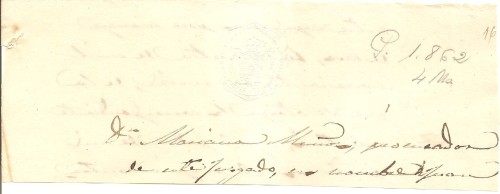 16
P. 1.862
4 Ms
Dn Mariano Muños, procurador
de este juzgado, en nombre de Juan